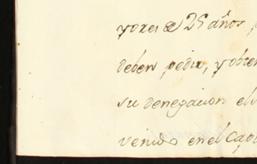 yores de 25 años
deben pedir, y obten
su denegacion el
venido en el Capi